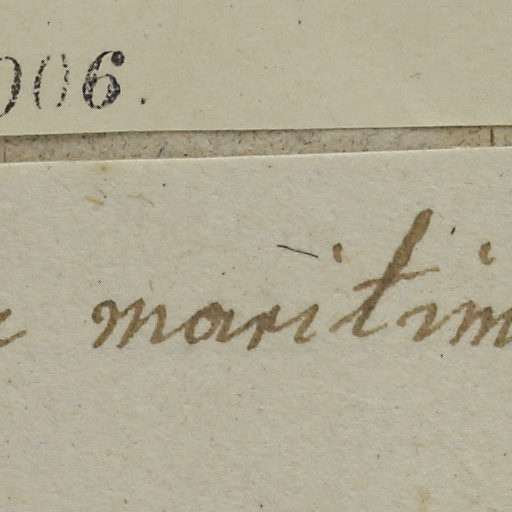 006.
maritim